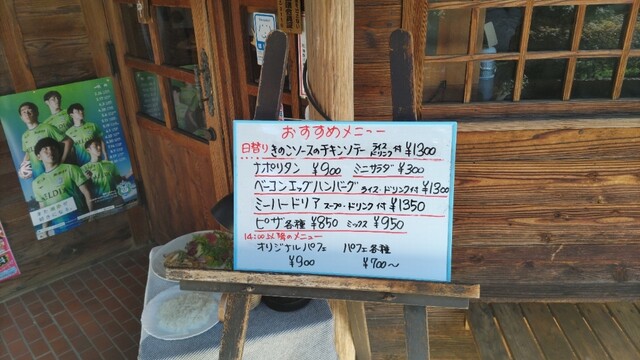 おすすめメニュー
日替り きのこソースのチキンソテー ライス ドリンク 付 ¥1300
ナポリタン ¥900 ミニサラダ ¥300
ベーコンエッグハンバーグ ライス・ドリンク付 ¥1300
ミートドリア スープ・ドリンク付 ¥1350
ピザ 各種 ¥850 ミックス ¥950
14:00以降のメニュー
オリジナルパフェ パフェ各種
¥900 ¥700〜